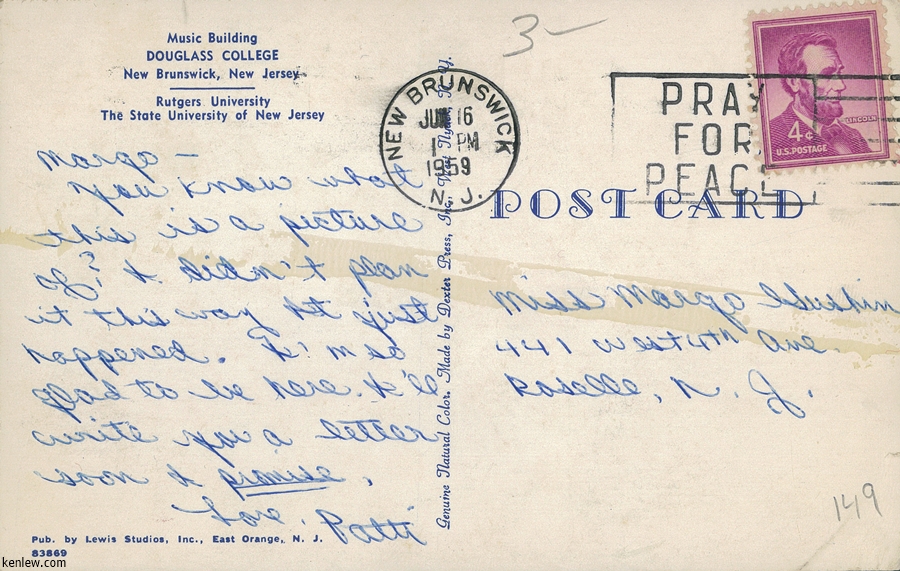 Music Building
DOUGLASS COLLEGE
New Brunswick, New Jersey
Rutgers University
The State University of New Jersey
3-
NEW BRUNSWICK
JUN 16
1 PM
1959
N. J.
PRAY
FOR
PEACE
LINCOLN
4¢
U.S. POSTAGE
POST CARD
Margo -
You know what
this is a picture
of? I didn't plan
it this way It just
happened. I'm so
glad to be here. I'll
write you a letter
soon I promise.
Love, Patti
Genuine Natural Color. Made by Dexter Press, Inc., West Nyack, N. Y.
Miss Margo
441 West 4th Ave.
Roselle, N. J.
149
Pub. by Lewis Studios, Inc., East Orange, N. J.
83869
kenlew.com